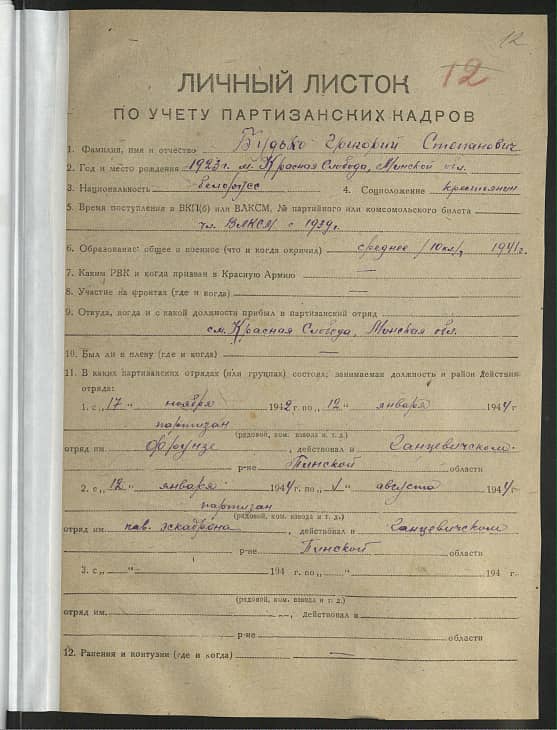 12
12
ЛИЧНЫЙ ЛИСТОК
ПО УЧЕТУ ПАРТИЗАНСКИХ КАДРОВ
1. Фамилия, имя и отчество Будько Григорий Степанович
2. Год и место рождения 1923 г. м. Красная Слобода, Минской обл.
3. Национальность белорус 4. Соцположение крестьянин
5. Время поступления в ВКП(б) или ВЛКСМ, № партийного или комсомольского билета
чл. ВЛКСМ с 1939 г.
6. Образование: общее и военное (что и когда окончил) среднее /10 кл/, 1941 г.
7. Каким РВК и когда призван в Красную Армию —
8. Участие на фронтах (где и когда) —
9. Откуда, когда и с какой должности прибыл в партизанский отряд
с м. Красная Слобода, Минская обл.
10. Был ли в плену (где и когда) —
11. В каких партизанских отрядах (или группах) состоял; занимаемая должность и район Действия
отряда:
1. с „17" ноября 1942 г. по „12" января 1944 г
партизан
(рядовой, ком. взвода и т. д.)
отряд им. Фрунзе, действовал в Ганцевичском
р-не Пинской области
2. с „12" января 1944 г. по „1" августа 1944 г
партизан
(рядовой, ком. взвода и т. д.)
отряд им. кав. эскадрона, действовал в Ганцевичском
р-не Пинской области
3. с „ " 194 г. по „ " 194 г.
(рядовой, ком. взвода и т. д.)
отряд им. , действовал в
р-не области
12. Ранения и контузии (где и когда) —